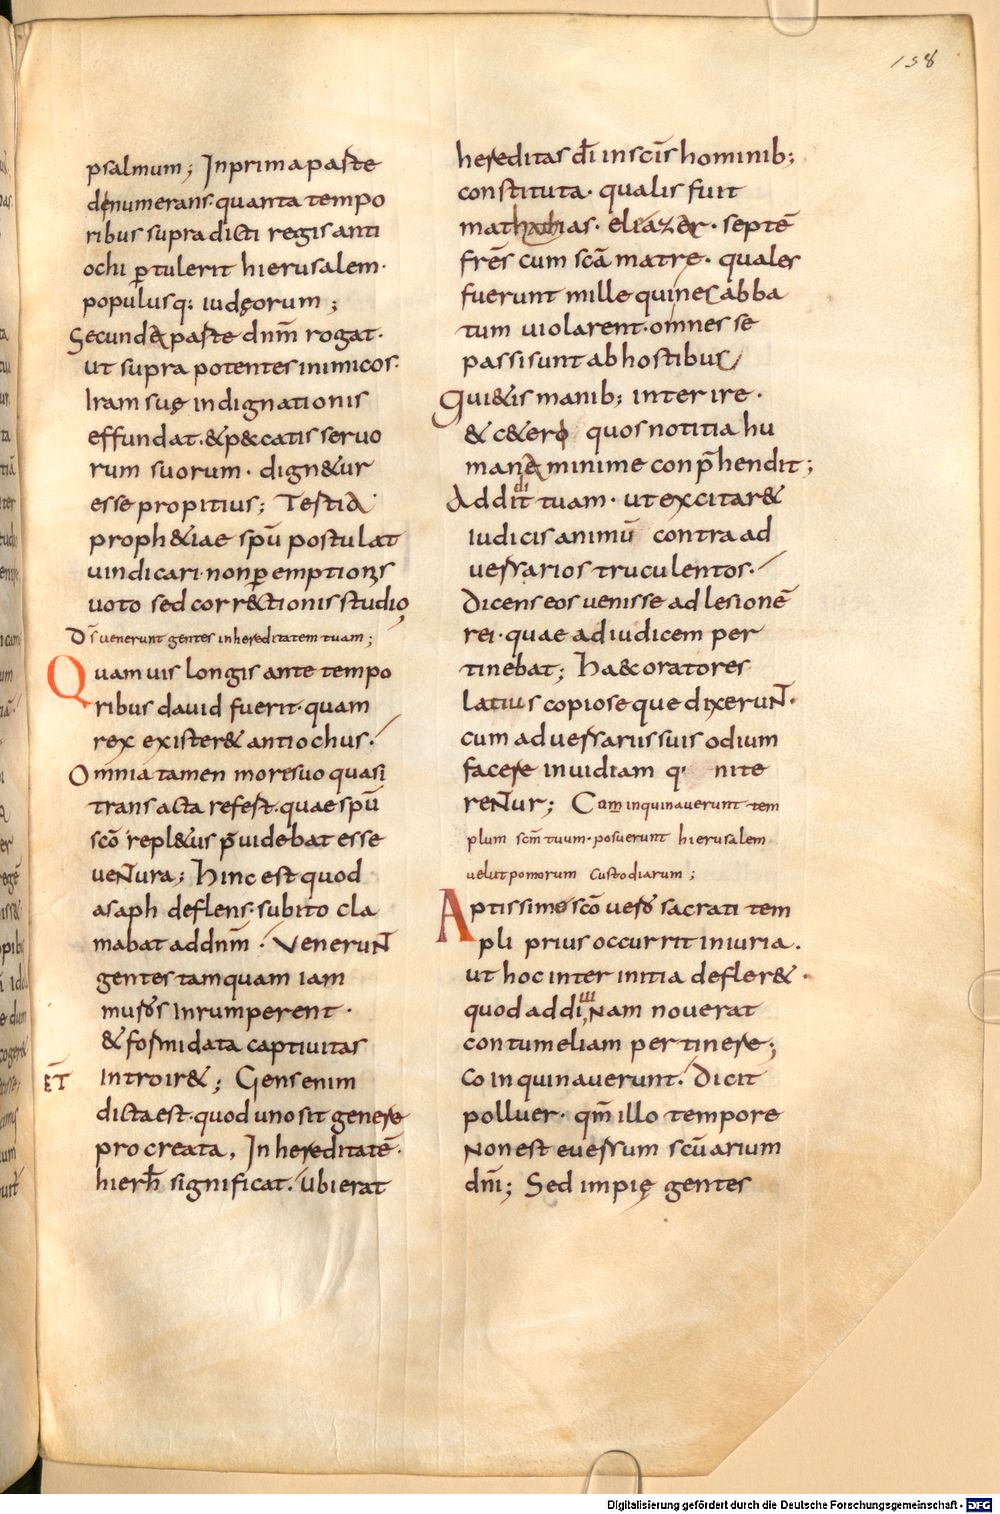 138
psalmum; In prima parte
denumerans. quanta tempo
ribus supra dicti regis anti
ochi ꝑtulerit hierusalem.
populusq: iudęorum;
Secunda parte dnm̄ rogat.
ut supra potentes inimicos.
Iram suę indignationis
effundat. & p&catis seruo
rum suorum. dign&ur
esse propitius; Tertia
proph&iae spū postulat
uindicari. non ꝑemptionis
uoto sed corr&ctionis studio;
Ds̄ venerunt gentes in hereditatem tuam;
Quam uis longis ante tempo
ribus dauid fuerit. quam
rex exister& antiochus.
Omnia tamen more suo quasi
transacta refert. quae spū
scō repl&us p̄uidebat esse
ueNTura; Hinc est quod
asaph deflens. subito cla
mabat ad dnm̄. VeneruNT
gentes tamquam iam
muros Inrumperent.
& formidata captiuitas
ET Introir&; Gens enim
dicta est. quod uno sit genere
procreata, In hereditatē.
hierl̄ significat. Ubi erat
hereditas dī in scīs hominib;
constituta. qualis fuit
mathathias. eliazer. septē
frēs cum scā matre. quales
fuerunt mille quines abba
tum uiolarent. omnes se
passi sunt ab hostibus
Qui&is manib; interire.
& c&ero quos notitia hu
mana minime conp̄hendit;
Addidit tuam. ut excitar&
iudicis animū contra ad
uersarios truculentos.
Dicens eos uenisse ad lesionē
rei. quae ad iudicem per
tinebat; Ha&c oratores
latius copioseque dixeruNT.
cum aduersariis suis odium
facere inuidiam q: nite
reNTur; Coinquinauerunt tem
plum scm̄ tuum. posuerunt hierusalem
velut pomorum custodiarum;
Aptissime scō uero sacrati tem
pli prius occurrit iniuria.
ut hoc inter initia defler&.
quod ad diuinam nouerat
contumeliam pertinere;
Coinquinauerunt. Dicit
polluer. qm̄ illo tempore
Non est euersum scūarium
dnī; Sed impię gentes
Digitalisierung gefördert durch die Deutsche Forschungsgemeinschaft - DFG